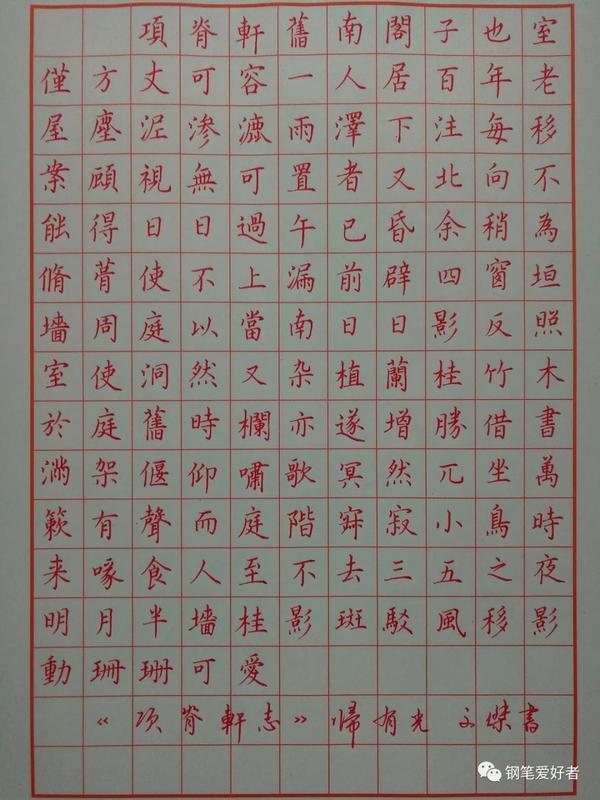 項脊軒舊南閣子也室
僅方丈可容一人居百年老
屋塵泥渗漉雨澤下注每移
案顧視無可置者又北向不
能得日日過午已昏余稍為
脩葺使不上漏前辟四窗垣
墻周庭以當南日日影反照
室使洞然又杂植蘭桂竹木
於庭舊時欄亦遂增勝借書
滿架偃仰嘯歌冥然兀坐萬
籁有聲而庭階寂寂小鳥時
来喙食人至不去三五之夜
明月半墻桂影斑駁風移影
動珊珊可愛
《项脊軒志》歸有光 文傑書
钢笔爱好者